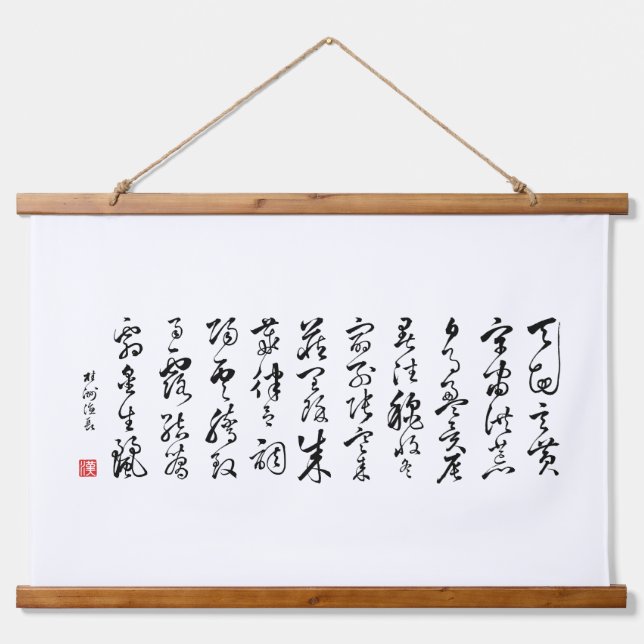 天地玄黃
宇宙洪荒
日月盈昃辰
暑往穐收冬
宿列張寒來
藏閏餘成
歲律呂調
陽雲騰致
雨露結為
霜金生麗
漢